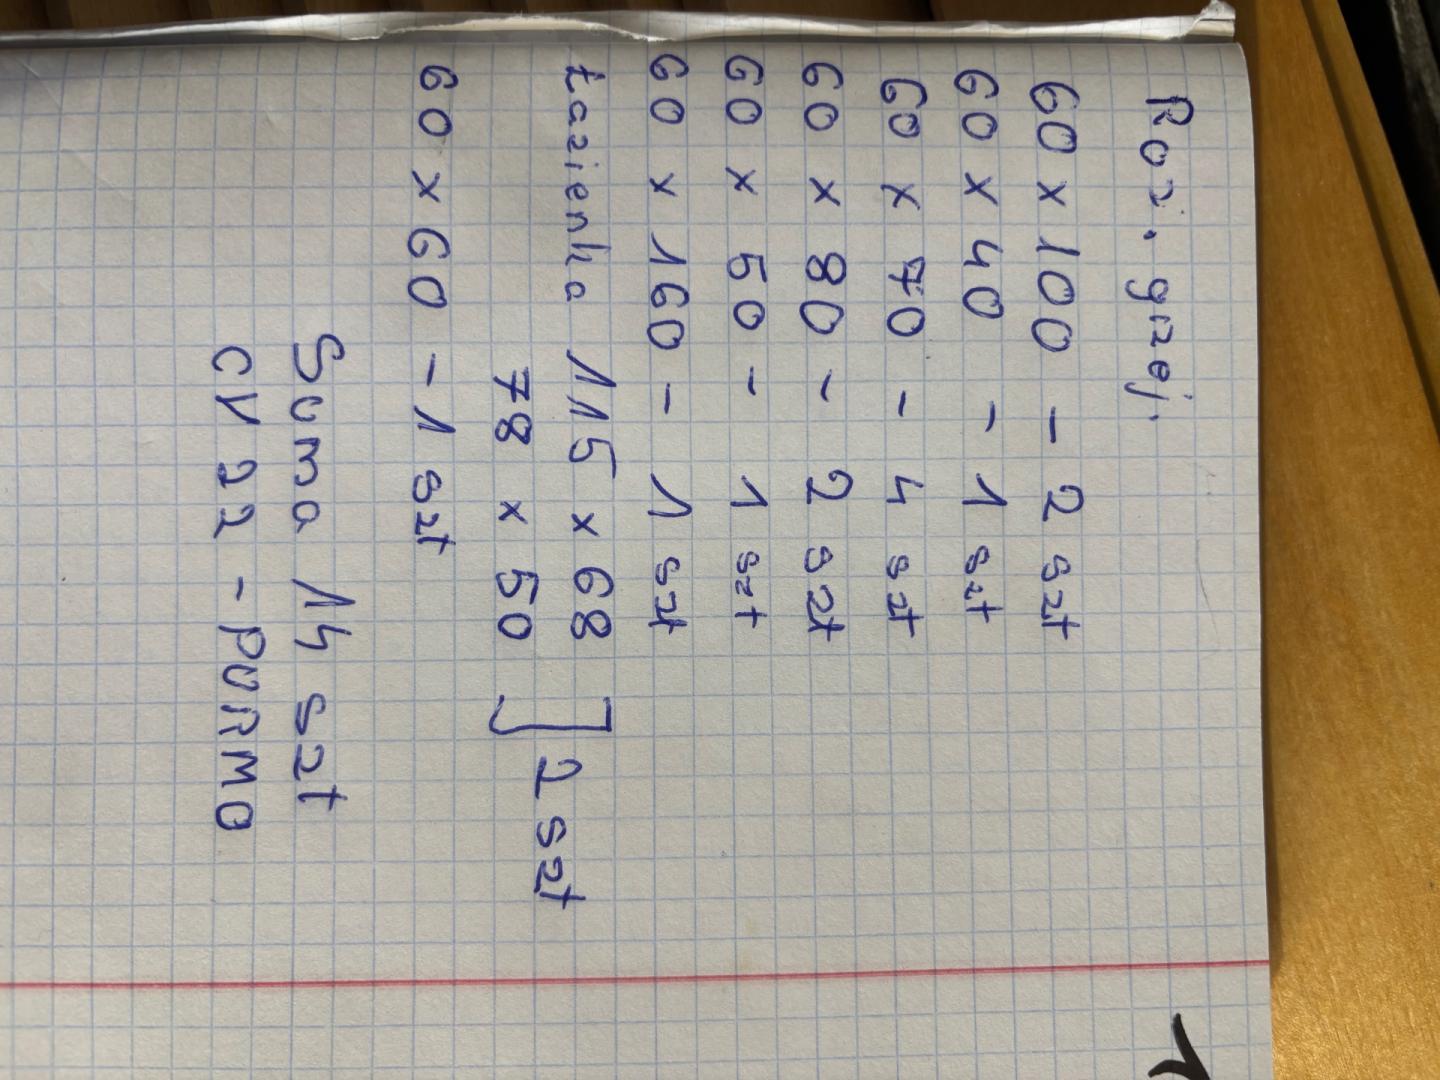 Roz. grzej.
60 x 100 - 2 szt
60 x 40 - 1 szt
60 x 70 - 4 szt
60 x 80 - 2 szt
60 x 50 - 1 szt
60 x 160 - 1 szt
Łazienka 115 x 68 ] 2 szt
78 x 50
60 x 60 - 1 szt
Suma 14 szt
CV 22 - PURMO